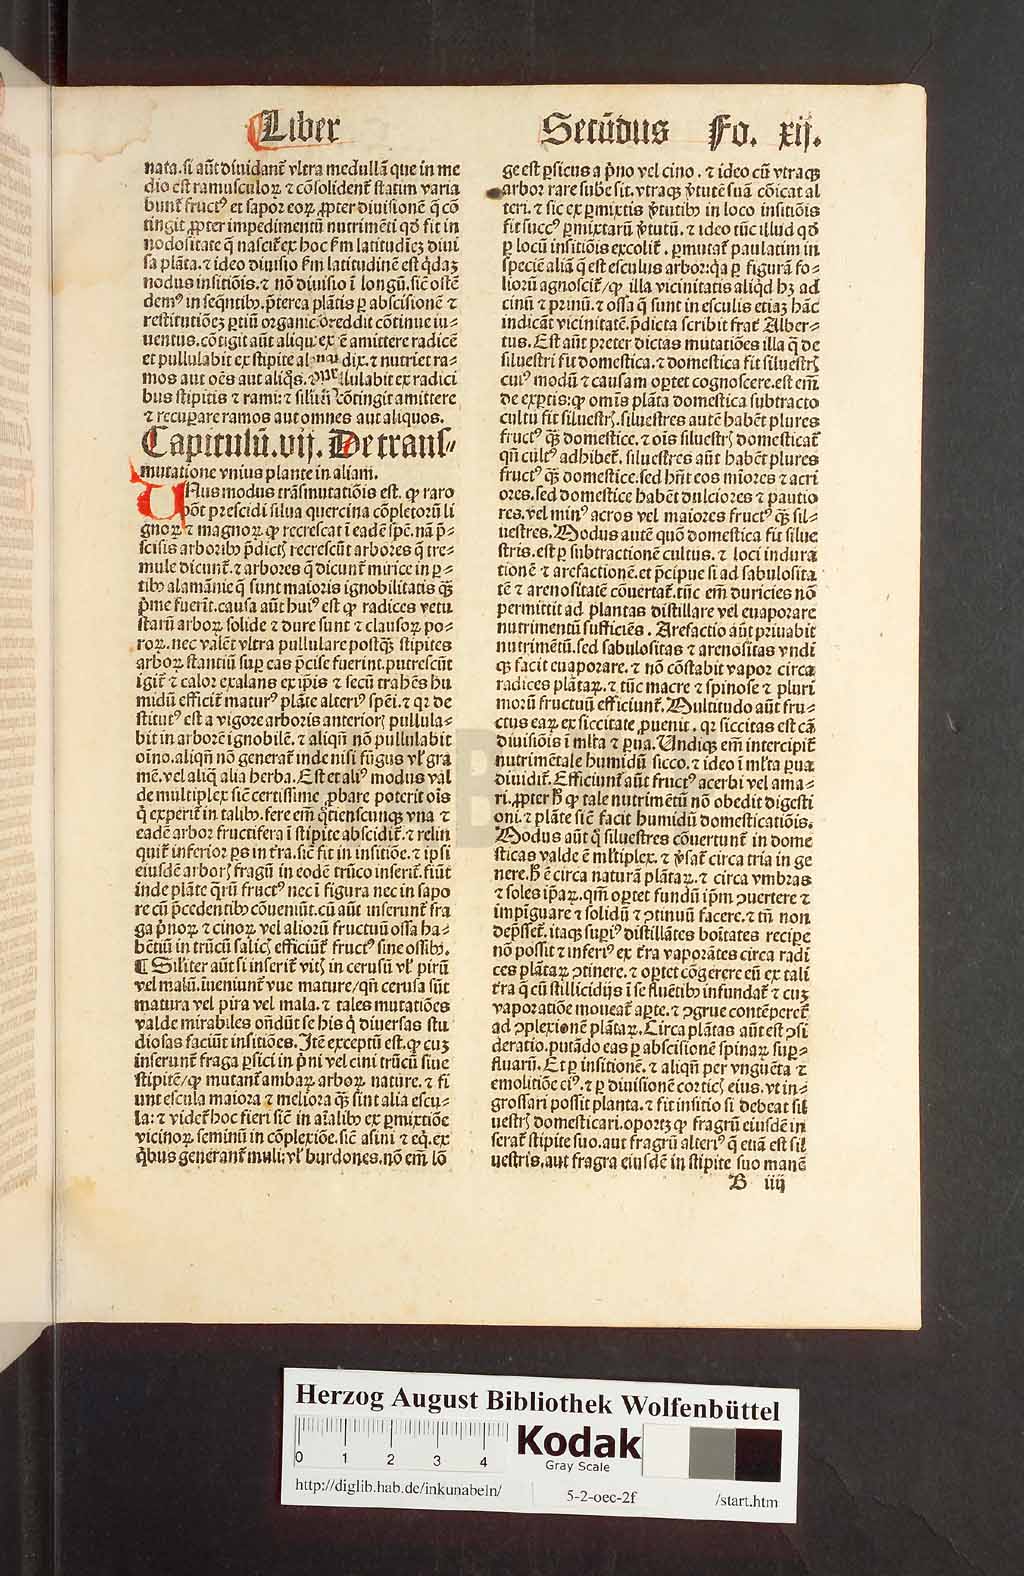 Liber Secūdus Fo. xij.
nata. si aūt diuidant᷑ vltra medullā que in me
dio est ramusculoꝝ ⁊ cōsolident᷑ statim varia
bunt᷑ fructꝰ et sapor eoꝝ ꝓpter diuisionē q̄ cō
tingit ꝓpter impedimentū nutrimēti qđ fit in
nodositate q̄ nascit᷑ ex hoc ẜm latitudiēꝫ diui
sa plāta. ⁊ ideo diuisio ẜm latitudinē est q̇daꝫ
nodus insitiōis. ⁊ nō diuisio ī longū. sic̄ ostē
demꝰ in seq̄ntibꝰ. p̄terea plātis ꝑ abscisionē ⁊
restitutiōeꝫ ꝑtiū organic reddit cōtinue iu⸗
uentus. cōtigit aūt aliqu ex ē amittere radicē
et pullulabit ex stipite al dix. ⁊ nutriet ra⸗
mos aut oēs aut aliq̄s. llulabit ex radici
bus stipitis ⁊ rami: ⁊ silr̄ cōtingit amittere
⁊ recuꝑare ramos aut omnes aut aliquos.
Capitulū. vij. De trans⸗
mutatione vnius plante in aliam.
UNus modus trāsmutatiōis est. ꝙ raro
pōt prescidi silua quercina cōpletorū li
gnoꝝ ⁊ magnoꝝ ꝙ recrescat ī eadē sp̄e. nā p̄⸗
scisis arboribꝰ p̄dictꝭ recrescūt arbores q̄ tre⸗
mule dicunt᷑. ⁊ arbores q̄ dicunt᷑ mirice in ꝑ⸗
tibꝰ alamānie q̄ sunt maioris ignobilitatis q̄ꝫ
p̄me fuerīt. causa aūt huiꝰ est ꝙ radices vetu
starū arboꝝ solide ⁊ dure sunt ⁊ clausoꝝ po⸗
roꝝ. nec valēt vltra pullulare postq̄ꝫ stipites
arboꝝ stantiū suꝑ eas p̄cise fuerint. putrescūt
igit᷑ ⁊ calor exalans ex ip̄is ⁊ secū trahēs hu
midū efficit᷑ maturꝰ plāte alteriꝰ sp̄ei. ⁊ qꝛ de
stitutꝰ est a vigore arboris anteriorꝭ pullula⸗
bit in arborē ignobilē. ⁊ aliqn̄ nō pullulabit
oīno. aliqn̄ nō generat᷑ inde nisi fūgus vl̓ gra
mē. vel aliq̄ alia herba. Est et aliꝰ modus val
de multiplex sic̄ certissime ꝓbare poterit oīs
q̇ experit᷑ in talibꝰ. fere em̄ q̇tienscunqꝫ vna ⁊
eadē arbor fructifera ī stipite abscidit᷑. ⁊ relin
quit᷑ inferior ꝑs in t̄ra. sic̄ fit in insitiōe. ⁊ ipsi
eiusdē arborꝭ fragū in eodē trūco inserit᷑. fiūt
inde plāte q̄rū fructꝰ nec ī figura nec in sapo
re cū p̄cedentibꝰ cōueniūt. cū aūt inserunt᷑ fra
ga p̄noꝝ ⁊ cinoꝝ vel aliorū fructuū ossa ha⸗
bētiū in trūcū salicꝭ efficiūt᷑ fructꝰ sine ossibꝰ.
¶ Sil̓iter aūt si inserit᷑ vitꝭ in cerusū vl̓ pirū
vel malū. īueniunt᷑ vue mature/qn̄ cerusa sūt
matura vel pira vel mala. ⁊ tales mutatiōes
valde mirabiles on̄dūt se his q̇ diuersas stu
diosas faciūt insitiōes. Itē exceptū est. ꝙ cuꝫ
inserunt᷑ fraga ꝑsici in p̄ni vel cini trūcū siue
stipitē/ꝙ mutant᷑ ambaꝝ arboꝝ nature. ⁊ fi
unt escula maiora ⁊ meliora q̄ꝫ sint alia escu⸗
la: ⁊ videt᷑ hoc fieri sic̄ in aīalibꝰ ex ꝑmixtiōe
vicinoꝝ seminū in cōplexiōe. sic̄ asini ⁊ eq̇. ex
q̇bus generant᷑ muli: vl̓ burdones. nō em̄ lō
ge est ꝑsicus a p̄no vel cino. ⁊ ideo cū vtraqꝫ
arbor rare sub̄e sit. vtraqꝫ v̓tutē suā cōicat al
teri. ⁊ sic ex ꝑmixtis v̓tutibꝰ in loco insitiōis
fit succꝰ ꝑmixtarū v̓tutū. ⁊ ideo tūc illud qđ
ꝑ locū insitiōis excolit᷑. ꝑmutat᷑ paulatim in
speciē aliā q̄ est esculus arbor: q̇a ꝑ figurā fo⸗
liorū agnoscit᷑/ꝙ illa vicinitatis aliq̇d hꝫ ad
cinū ⁊ prinū. ⁊ ossa q̄ sunt in esculis etiaꝫ hāc
indicāt vicinitatē. p̄dicta scribit frat᷑ Alber⸗
tus. Est aūt preter dictas mutatiōes illa q̄ de
siluestri fit domestica. ⁊ domestica fit siluestrꝭ
cuiꝰ modū ⁊ causam oꝑtet cognoscere. est em̄
de exꝑtis: ꝙ omīs plāta domestica subtracto
cultu fit siluestrꝭ. siluestres autē habēt plures
fructꝰ q̄ꝫ domestice. ⁊ oīs siluestrꝭ domesticat᷑
qn̄ cultꝰ adhibet᷑. siluestres aūt habēt plures
fructꝰ q̄ꝫ domestice. sed hn̄t eos miores ⁊ acri
ores. sed domestice habēt dulciores ⁊ pautio
res. vel minꝰ acros vel maiores fructꝰ q̄ꝫ sil⸗
uestres. Modus autē quō domestica fit silue
stris. est ꝑ subtractionē cultus. ⁊ loci indura
tionē ⁊ arefactionē. et p̄cipue si ad sabulosita
tē ⁊ arenositatē cōuertat᷑. tūc em̄ duricies nō
permittit ad plantas distillare vel euaporare
nutrimentū sufficiēs. Arefactio aūt priuabit
nutrimētū. sed sabulositas ⁊ arenositas vndi
qꝫ facit euaporare. ⁊ nō cōstabit vapor circa
radices plātaꝝ. ⁊ tūc macre ⁊ spinose ⁊ pluri
morū fructuū efficiunt᷑. Multitudo aūt fru⸗
ctus eaꝝ ex siccitate ꝓuenit. qꝛ siccitas est cā
diuisiōis ī ml̓ta ⁊ ꝑua. Undiqꝫ em̄ intercipit᷑
nutrimētale humidū sicco. ⁊ ideo ī ml̓ta ꝑua
diuidit᷑. Efficiunt᷑ aūt fructꝰ acerbi vel ama⸗
ri. ꝓpter hͦ ꝙ tale nutrimētū nō obedit digesti
oni. ⁊ plāte sic̄ facit humidū domesticatiōis.
Modus aūt q̇ siluestres cōuertunt᷑ in dome
sticas valde ē ml̓tiplex. ⁊ v̓sat᷑ circa tria in ge
nere. hͦ ē circa naturā plātaꝝ. ⁊ circa vmbras
⁊ soles ip̄aꝝ. qm̄ oꝑtet fundū ip̄m ꝯuertere ⁊
īmpīguare ⁊ solidū ⁊ ꝯtinuū facere. ⁊ tn̄ non
dep̄sset᷑. itaqꝫ suꝑiꝰ distillātes boītates recipe
nō possit ⁊ inferiꝰ ex t̄ra vaporātes circa radi
ces plātaꝝ ꝯtinere. ⁊ oꝑtet cōgerere eū ex tali
t̄ra q̄ cū stillicidijs ī se fluētibꝰ infundat᷑ ⁊ cuꝫ
vaporatiōe moueat᷑ aꝑte. ⁊ ꝯgrue contēperet᷑
ad ꝯplexionē plātaꝝ. Circa plātas aūt est ꝯsi
deratio. putādo eas ꝑ abscisionē spinaꝝ suꝑ⸗
fluarū. Et ꝑ insitionē. ⁊ aliqn̄ per vnguēta ⁊
emolitiōe eiꝰ. ⁊ ꝑ diuisionē corticꝭ eius. vt in⸗
grossari possit planta. ⁊ fit insitio si debeat sil
uestrꝭ domesticari. oportꝫ ꝙ fragrū eiusdē in
serat᷑ stipite suo. aut fragrū alteriꝰ q̄ etiā est sil
uestris. aut fragra eiusdē in stipite suo manē
B iiij
Herzog August Bibliothek Wolfenbüttel
0 1 2 3 4
Kodak
Gray Scale
http://diglib.hab.de/inkunabeln/ 5-2-oec-2f /start.htm